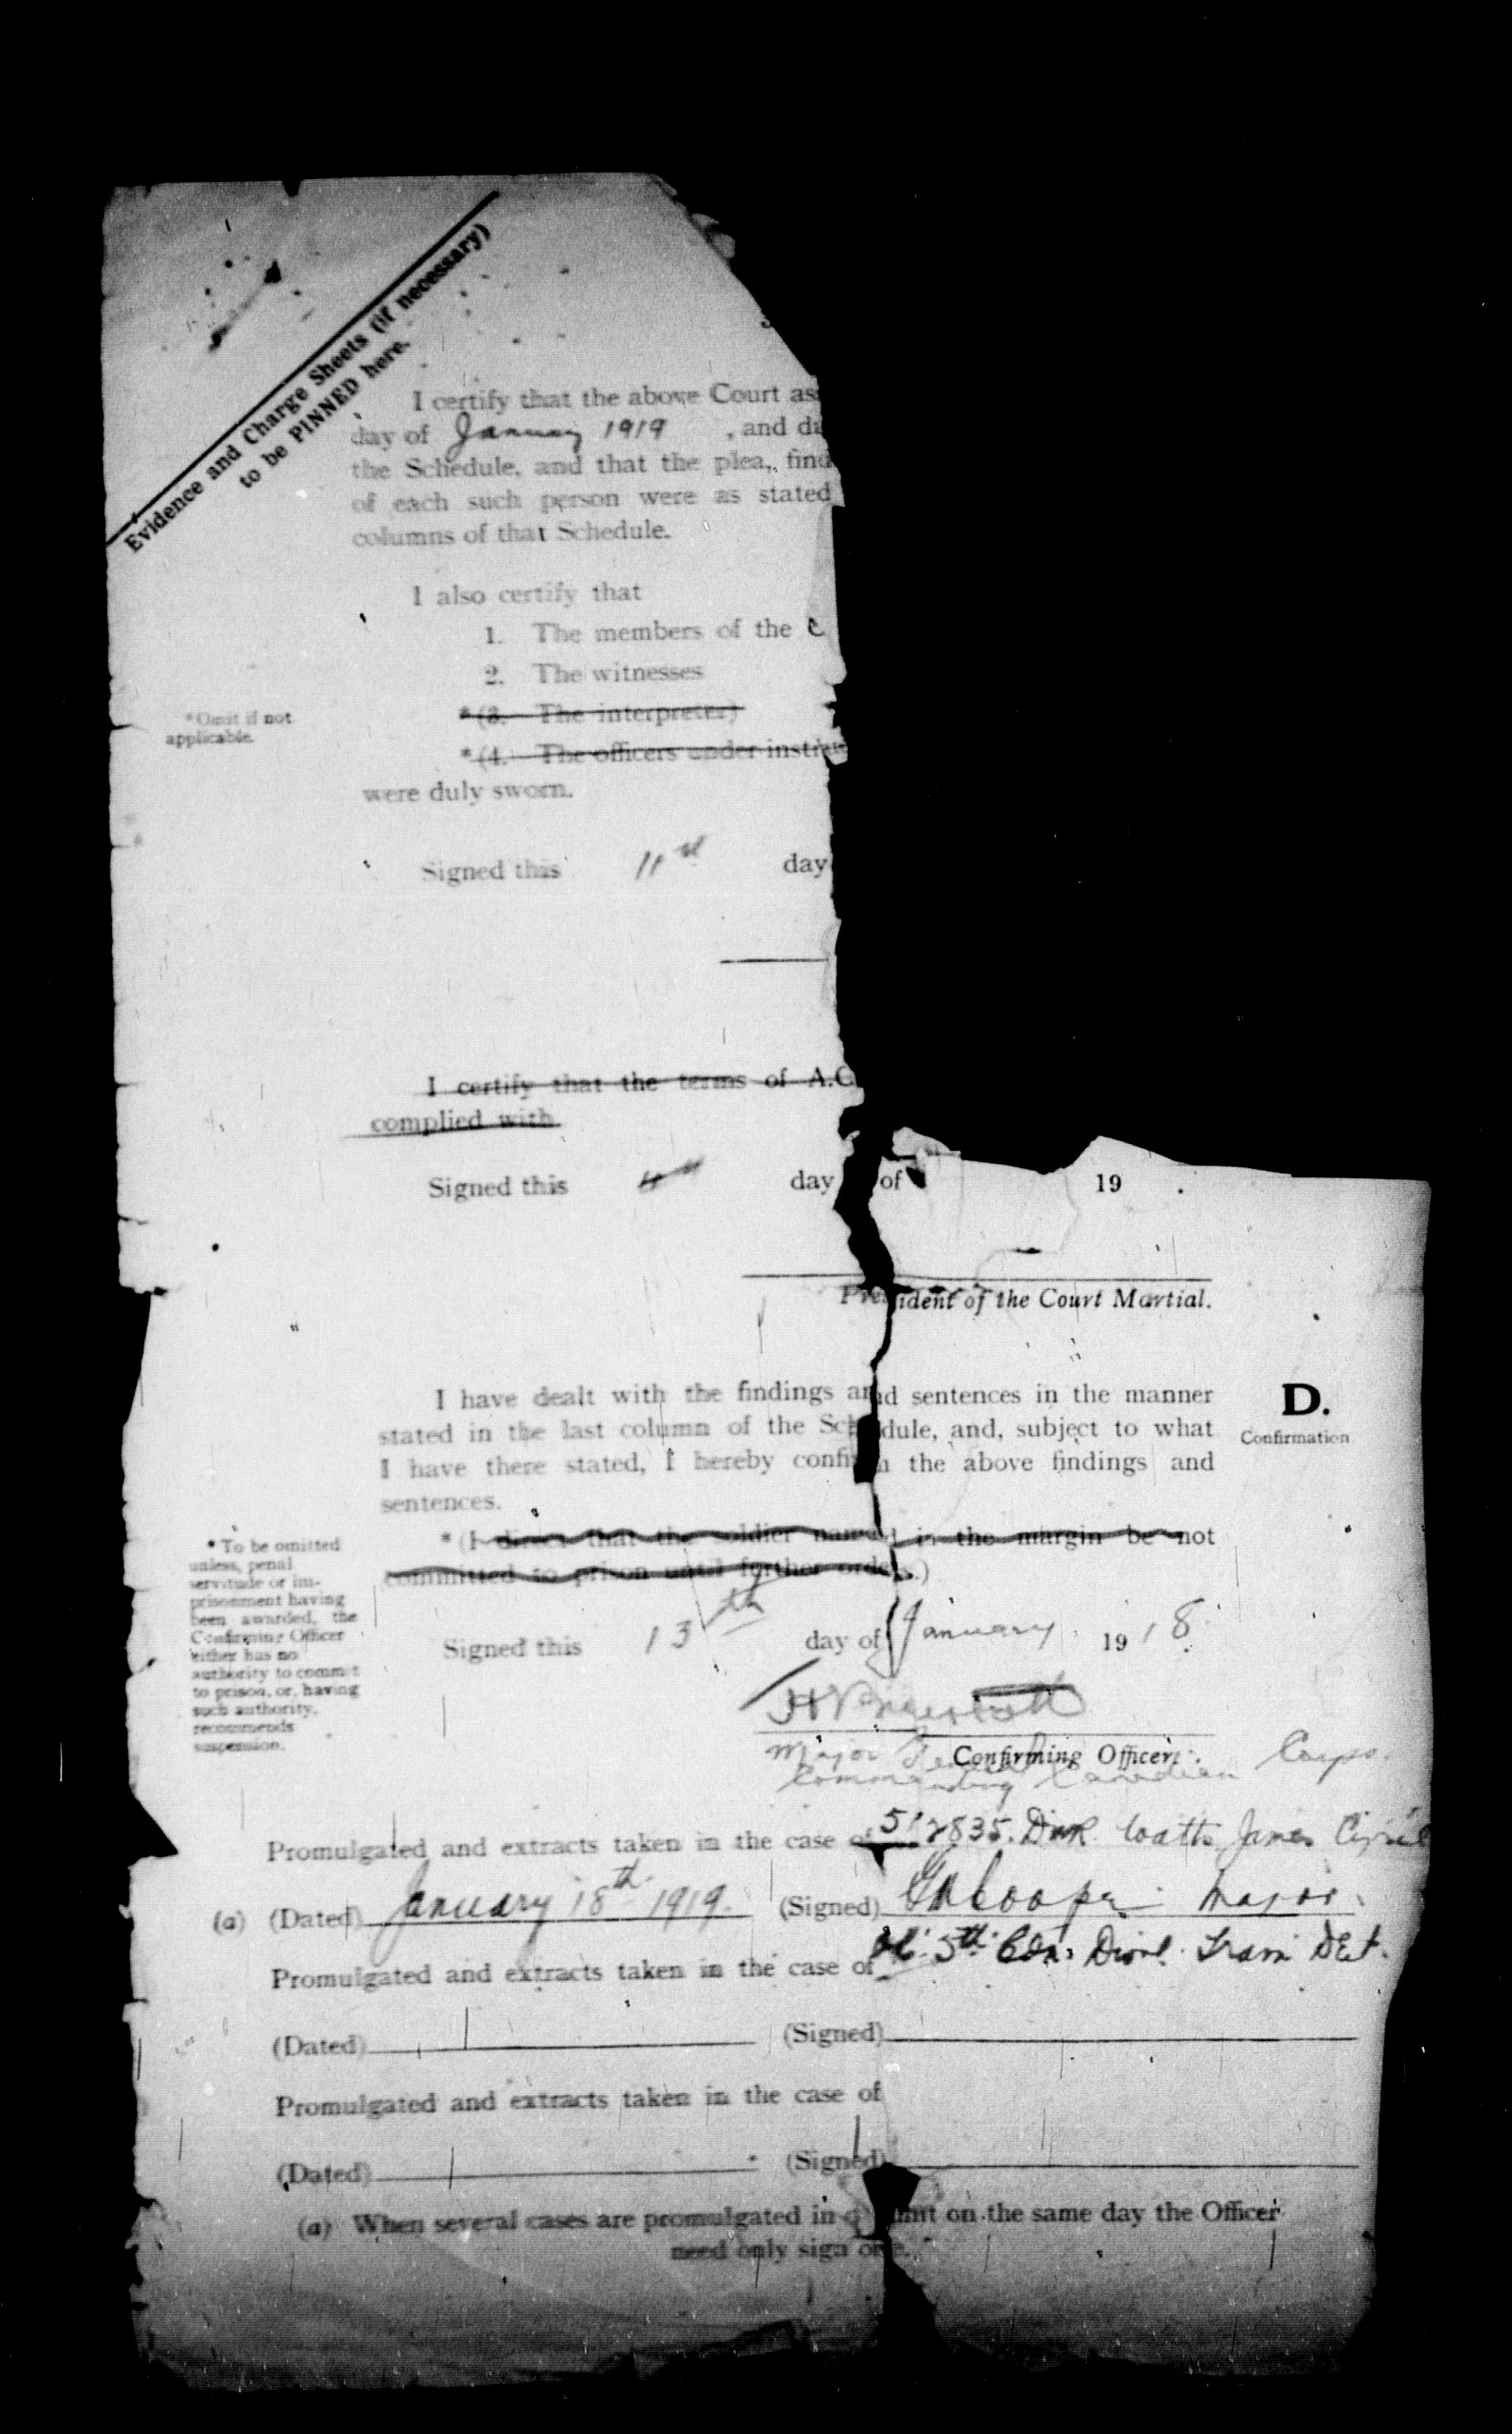 Evidence and Charge Sheets (if necessary)
to be PINNED here.
I certify that the above Court as
day of January 1919 , and di
the Schedule, and that the plea, find
of each such person were as stated
columns of that Schedule.
I also certify that
1. The members of the C
2. The witnesses
*(3. The interpreter)
*Omit if not
applicable.
*(4. The officers under instruc
were duly sworn.
Signed this 11 day
I certify that the terms of A.C.
complied with.
Signed this day of 19 .
President of the Court Martial.
I have dealt with the findings and sentences in the manner
stated in the last column of the Schedule, and, subject to what
I have there stated, I hereby confirm the above findings and
sentences.
D.
Confirmation
*(I direct that the soldier named in the margin be not
committed to prison until further orders.)
* To be omitted
unless, penal
servitude or im-
prisonment having
been awarded, the
Confirming Officer
either has no
authority to commit
to prison, or, having
such authority,
recommends
suspension.
Signed this 13th day of January 1918
Major Confirming Officer.
Commanding Canadian Corps.
Promulgated and extracts taken in the case of 512835. Dvr. Watts James Cyril
(a) (Dated) January 18th 1919. (Signed) Cooper Major.
Promulgated and extracts taken in the case of 5th Cdn. Divl. Train Det.
(Dated) (Signed)
Promulgated and extracts taken in the case of
(Dated) (Signed)
(a) When several cases are promulgated in a unit on the same day the Officer
need only sign once.